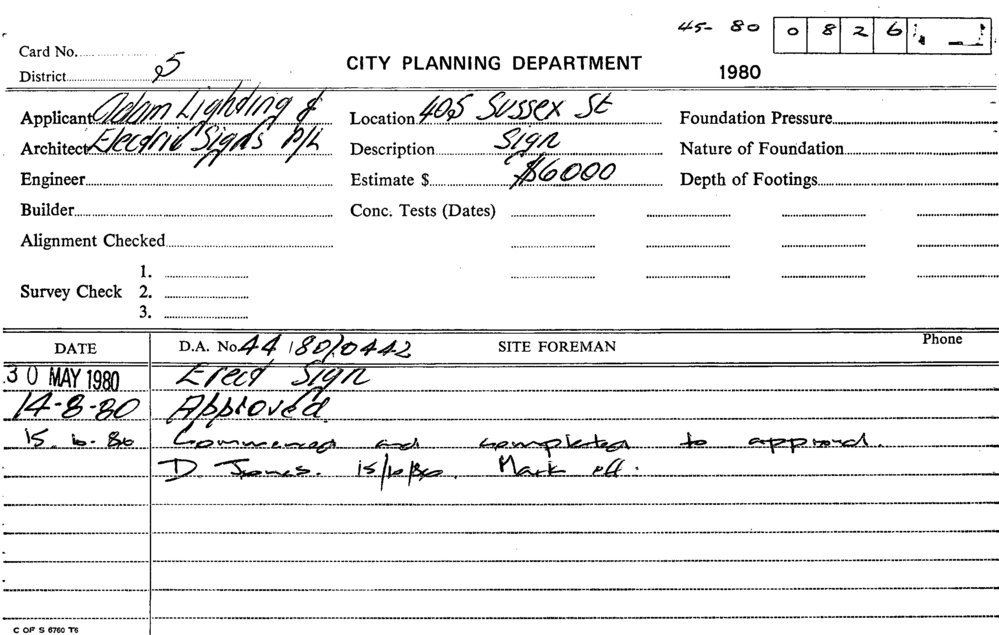 45- 80 0826
Card No.
District 5
CITY PLANNING DEPARTMENT
1980
Applicant Adam Lighting &
Architect Electric Signs P/L
Engineer
Builder
Alignment Checked
Survey Check
1.
2.
3.
Location 405 Sussex St
Description Sign
Estimate $ $6000
Conc. Tests (Dates)
Foundation Pressure
Nature of Foundation
Depth of Footings
DATE
D.A. No. 44/80/0442
SITE FOREMAN
Phone
30 MAY 1980 Erect Sign
14-8-80 Approved
Commenced and completed to approval.
D. Jones. Mark off.
C OF S 6760 T6